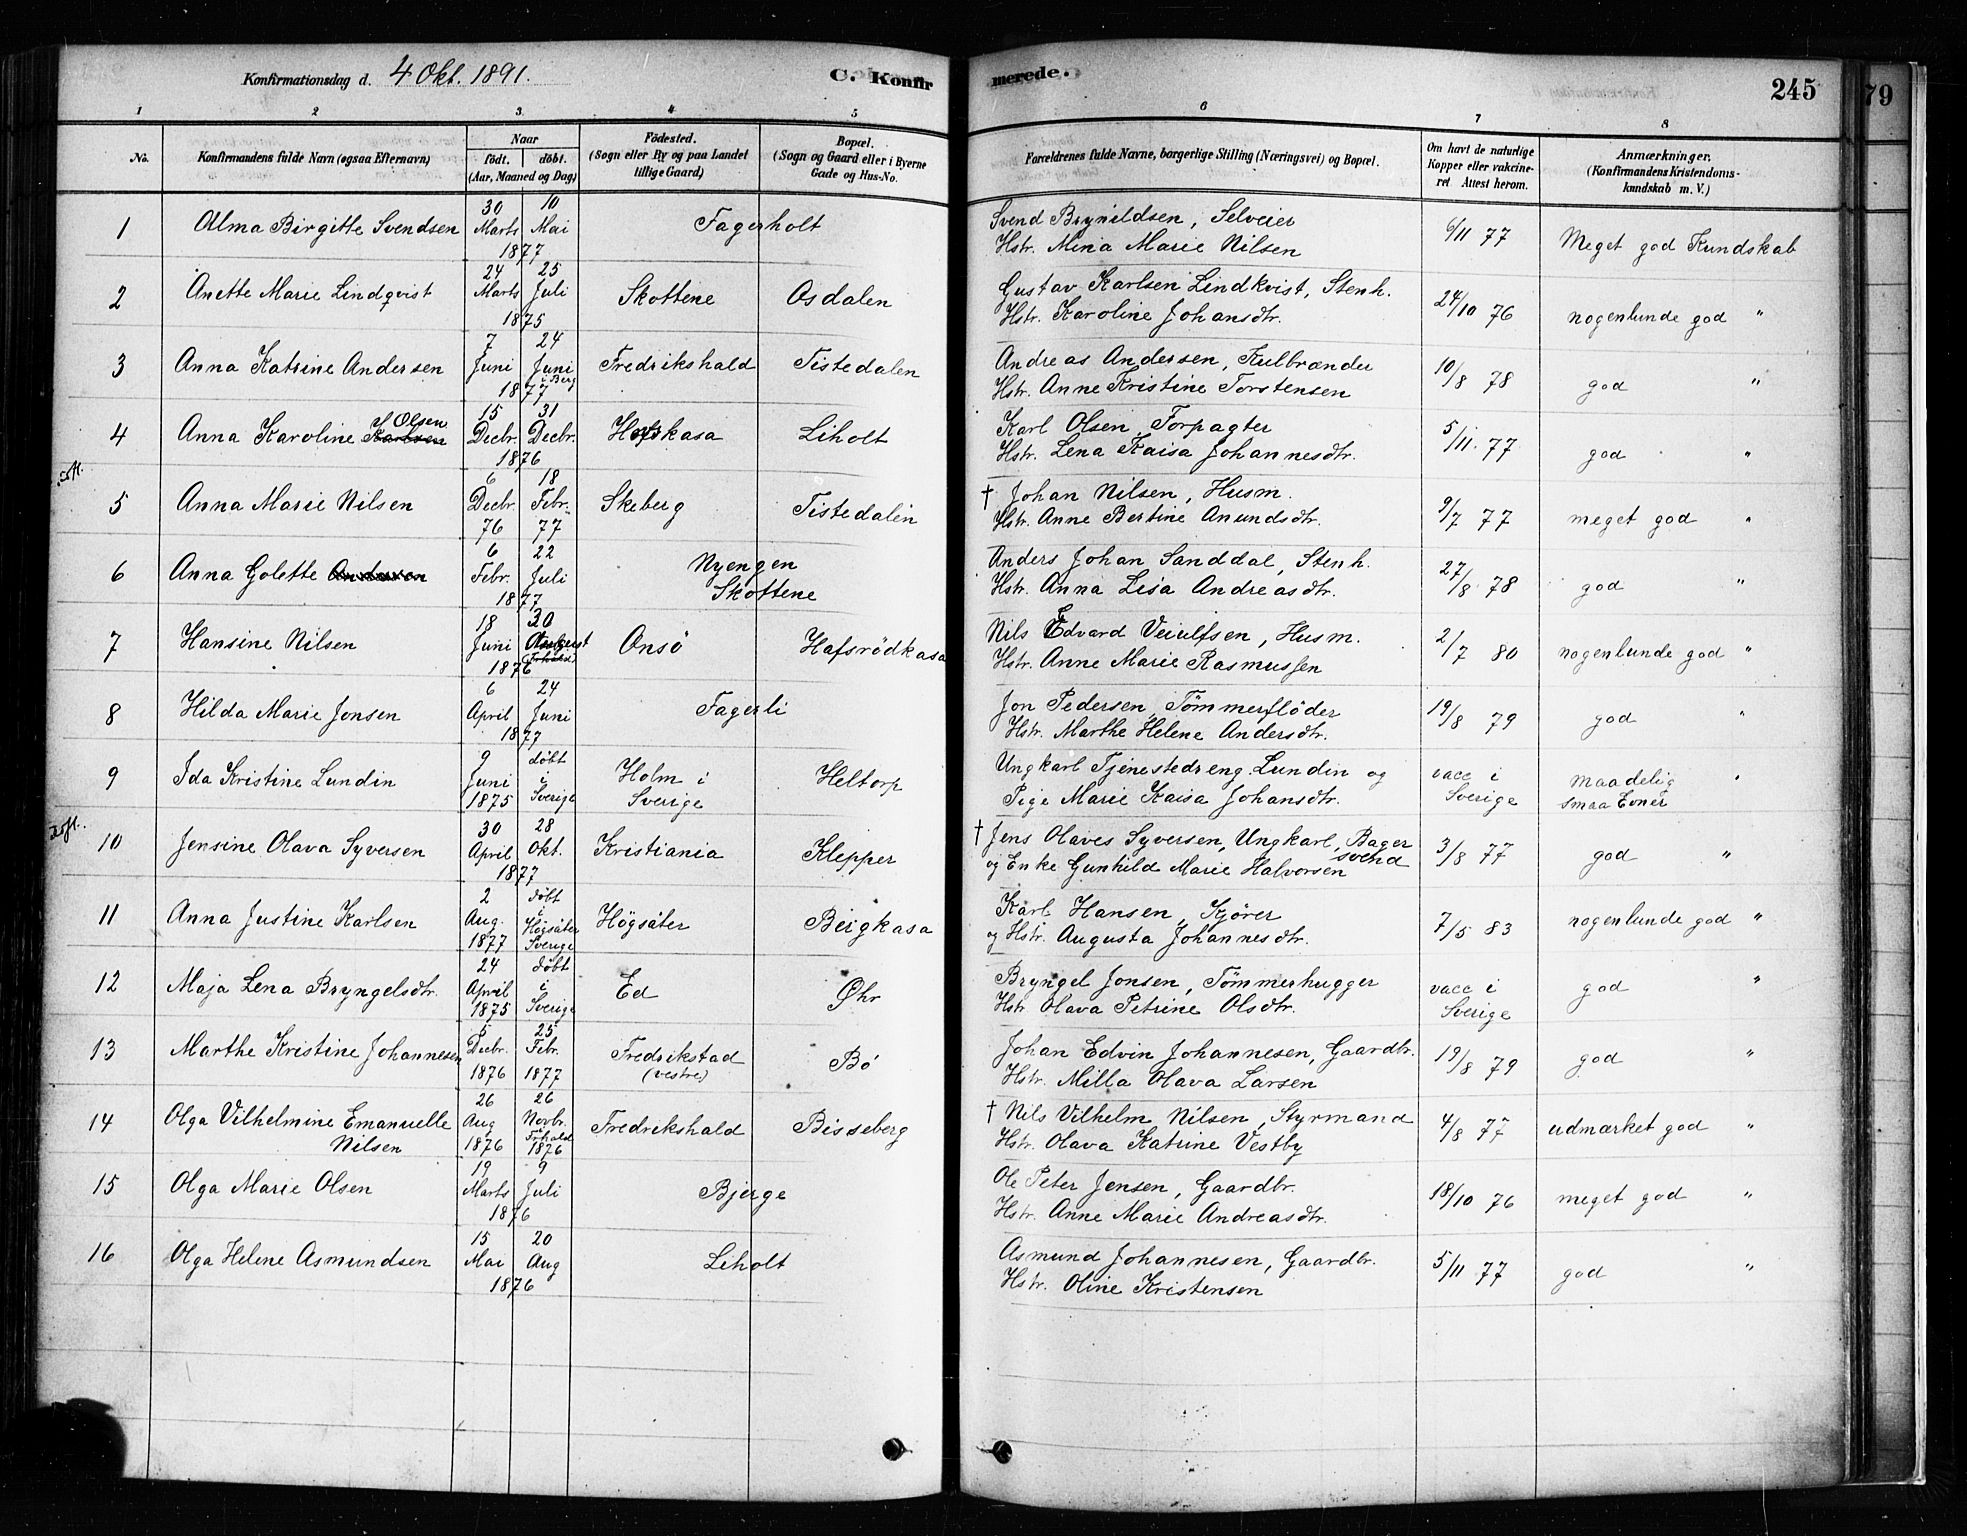 Konfirmationsdag d. 4 Okt. 1891.
C. Konfirmerede.
245
79
1 2 3 4 5 6 7 8
No.
Konfirmandens fulde Navn (ogsaa Efternavn)
Naar
födt. döbt.
(Aar, Maaned og Dag)
Födested.
(Sogn eller By og paa Landet
tillige Gaard)
Bopæl.
(Sogn og Gaard eller i Byerne
Gade og Hus-No.
Forældrenes fulde Navne, borgerlige Stilling (Næringsvei) og Bopæl.
Om havt de naturlige
Kopper eller vakcineret
Attest herom.
Anmærkninger.
(Konfirmandens Kristendomskundskab
m. V.)
1 Alma Birgitte Svendsen 30 Marts 10 Mai 1877 Fagerholt
Svend Brynildsen, Selveier
Hstr. Mina Marie Nilsen 6/11 77 Meget god Kundskab
2 Anette Marie Lindqvist 24 Marts 25 Juli 1875 Skottene Osdalen
Gustav Karlsen Lindkvist, Stenh.
Hstr. Karoline Johansdtr. 24/10 76 nogenlunde god "
3 Anna Katrine Andersen 7 Juni 24 Juni i Berg 1877 Fredrikshald Tistedalen
Andreas Andersen, Kulbrænder
Hstr. Anne Kristine Torstensen 10/8 78 god "
4 Anna Karoline Karlsen Olsen 15 Decbr. 31 Decbr. 1876 kasa Liholt
Karl Olsen, Forpagter
Hstr. Lena Kaisa Johannesdtr. 5/11. 77 god "
5 Anna Marie Nilsen 6 Decbr. 76 18 Febr. 77 Skeberg Tistedalen
† Johan Nilsen, Husm.
Hstr. Anne Bertine Anundsdtr. 9/7 77 meget god "
6 Anna Golette 6 Febr. 22 Juli 1877 Nyengen
Skottene
Anders Johan Sanddal, Stenh.
Hstr. Anna Lisa Andreasdtr. 27/8 78 god "
7 Hansine Nilsen 18 Juni 30 1876 Onsö Hafsrödkasa
Nils Edvard Veiulfsen, Husm.
Hstr. Anne Marie Rasmussen 2/7 80 nogenlunde god "
8 Hilda Marie Jonsen 6 April 24 Juni 1877 Fagerli
Jon Pedersen, Tömmerflöder
Hstr. Marthe Helene Andersdtr. 19/8 79 god "
9 Ida Kristine Lundin 9 Juni 1875 döbt i Sverige Holm i
Sverige Heltorp
Ungkarl Tjenestedreng Lundin og
Pige Marie Kaisa Johansdtr. vacc i
Sverige maadelig "
smaa Evner
10 Jensine Olava Syversen 30 April 28 Okt. 1877 Kristiania Klepper
† Jens Olaves Syversen, Ungkarl, Bager
svend
og Enke Gunhild Marie Halvorsen 3/8 77 god "
11 Anna Justine Karlsen 2 Aug. 1877 döbt i Högsäter Sverige Högsäter Bergkasa
Karl Hansen, Kjörer
og Hstr. Augusta Johannesdtr. 7/5 83 nogenlunde god "
12 Maja Lena Bryngelsdtr. 24 April 1875 döbt i Sverige Ed Øhr
Bryngel Jonsen, Tömmerhugger
Hstr Olava Petrine Olsdtr. vacc i
Sverige god "
13 Marthe Kristine Johannesen 5 Decbr. 1876 25 Febr. 1877 Fredrikstad
(vestre) Bö
Johan Edvin Johannesen, Gaardbr.
Hstr. Milla Olava Larsen 19/8 79 god "
14 Olga Vilhelmine Emanuelle
Nilsen 26 Aug 1876 26 Novbr. i Frhald 1876 Fredrikshald Bisseberg
† Nils Vilhelm Nilsen, Styrmand
Hstr. Olava Katrine Vestby 4/8 77 udmærket god "
15 Olga Marie Olsen 19 Marts 9 Juli 1876 Bjerge
Ole Peter Jensen, Gaardbr.
Hstr. Anne Marie Andreasdtr. 18/10 76 meget god "
16 Olga Helene Asmundsen 15 Mai 20 Aug 1876 Liholt
Asmund Johannesen, Gaardbr.
Hstr. Oline Kristensen 5/11 77 god "